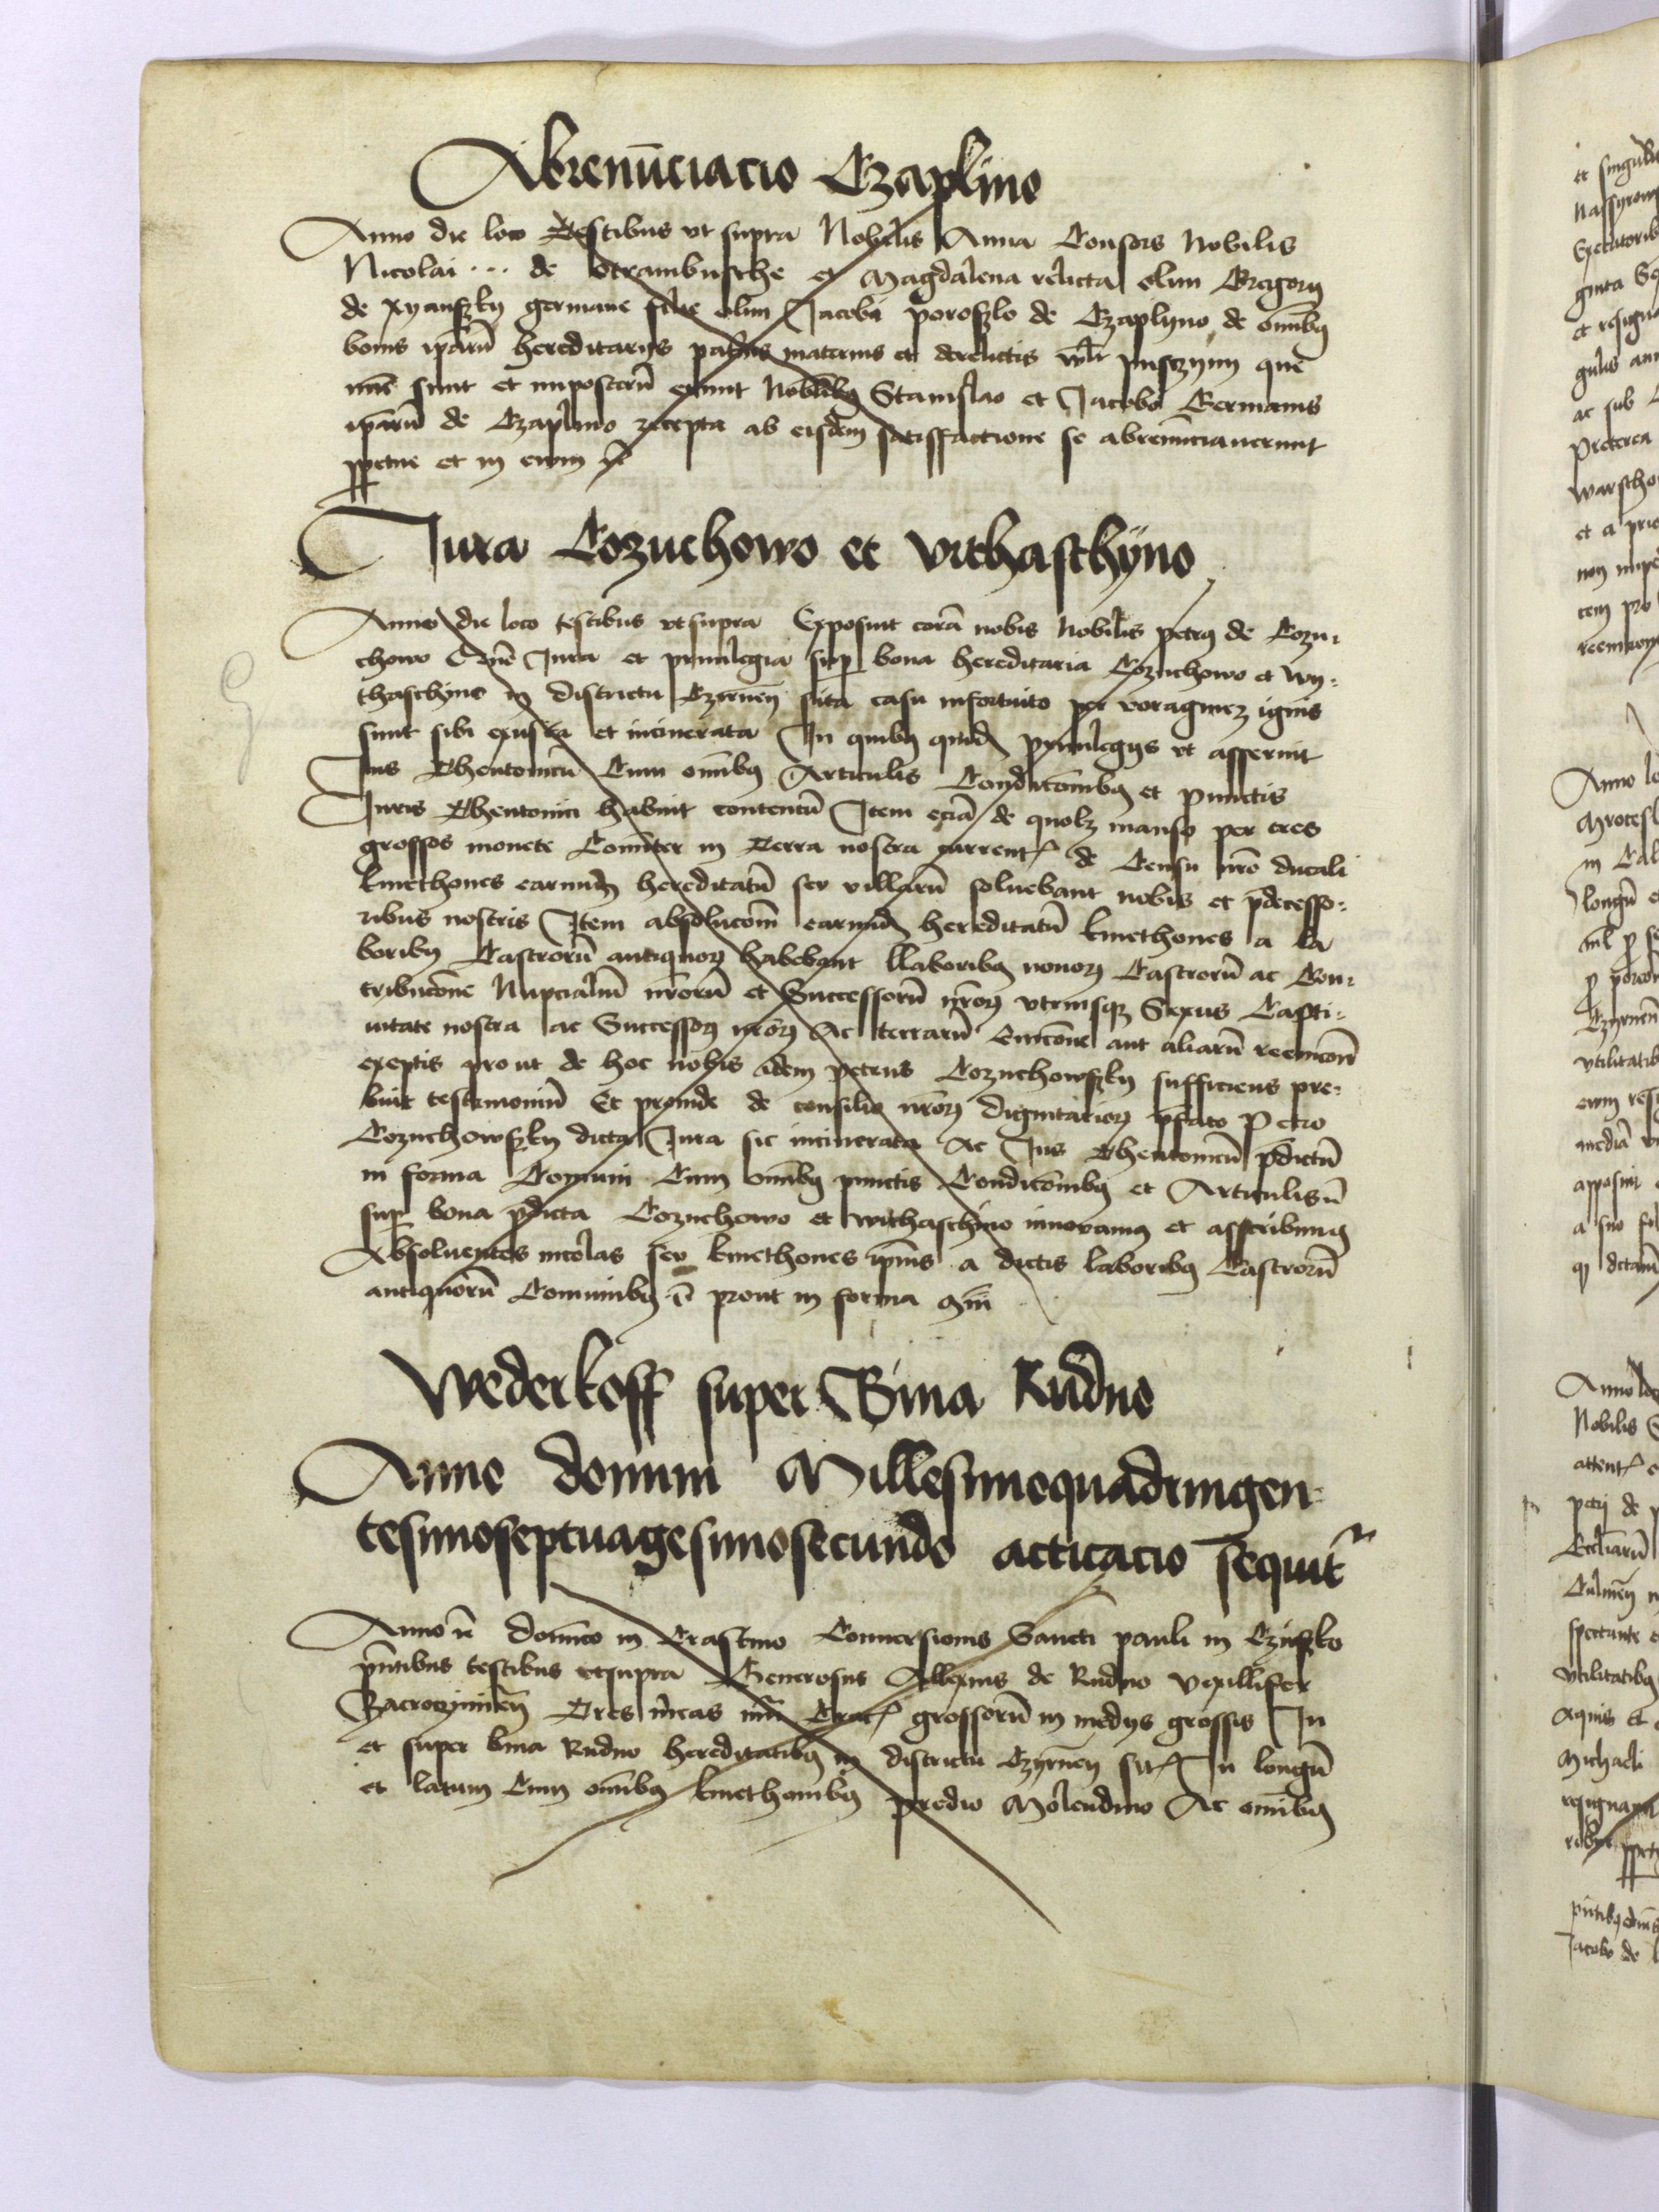 Abrenūciacio Czaplino
Anno die loco Testibus vt supra Nobilis Anna Consors Nobilis
Nicolai ... de et Magdalena relicta olim Gregorij
de germane filie olim Jacobi de Czaplyno de om̄ibꝫ
bonis ip̄arū hereditarijs pat̄nis maternis et derelictis que
nūc sunt et inposterū erunt Nobilibꝫ Stanislao et Jacobo Germanis
ip̄arū de Czaplino recepta ab eisdem satisfactione se abrenūciauerunt
ꝑpetue et in ewm
Jura Cozuchowo et Vithaschÿno
Anno die loco testibus vtsupra Exposuit corā nobis Nobilis petrꝫ de Cozu-
chowo Jura et priuilegia sup bona hereditaria Cozuchowo et Wy-
thaschyno in districtu Czirnen̄ sita casu infortuito per voraginez ignis
sunt sibi exusta et incinerata In quibꝫ quidē priuilegijs vt asseruit
Jus Thewtonicū Cum om̄ibꝫ Articulis Condicōnibꝫ et punctis
Juris Thewtonici habuit contentū Item eciā de quolz manso per tres
grossos monete Com̄iter in Terra nostra currentꝭ de Censu nr̄o ducali
kmethones earundē hereditatū sev villarū soluebant nobis et p̄decesso-
ribus nostris Item absolucōm̄ earundē hereditatū kmethones a la
boribꝫ Castrorū antiquorꝫ habebant llaboribꝫ nouorꝫ Castrorū ac Con-
tribucōne Nupcialiū nr̄orū et Successorū nr̄orꝫ vtriusqꝫ Sexus Capti-
uitate nostra ac Successorꝫ nr̄orꝫ Ac terrarū Empcōne aut aliarū reempcōn̄
exeptis prout de hoc nobis idem petrus Cozuchowsky sufficiens pre-
buit testimoniū Et proinde de consilio nr̄orꝫ dignitariorꝫ p̄fato Petro
Cozuchowsky dicta Jura sic incinerata Ac Jus Thewtonicū p̄dictū
in forma Com̄uni Cum om̄ibꝫ punctis Condicōnibꝫ et Articulis
sup bona p̄dicta Cozuchowo et withaschino innouamꝫ et asscribimꝫ
Absoluentes incolas sev kmethones ip̄ius a dictis laboribꝫ Castrorū
antiquorū Com̄unibꝫ prout in forma
Wederkoff super Bina Rudno
Anno domini Millesimoquadringen-
tesimoseptuagesimosecundo acticacio sequit̄
Anno domīco in Crastino Conuersionis Sancti pauli in Czirsko
pn̄tibus testibus vtsupra Generosus Allexius de Rudno Vexillifer
Zacroczimien̄ Tres m̄cas grossorū in medijs grossis In
et super bina Rudno hereditatibꝫ in districtu Czyrnen̄ sitꝭ In longū
et latum Cum om̄ibꝫ kmethonibꝫ predio Molendino Ac om̄ibꝫ